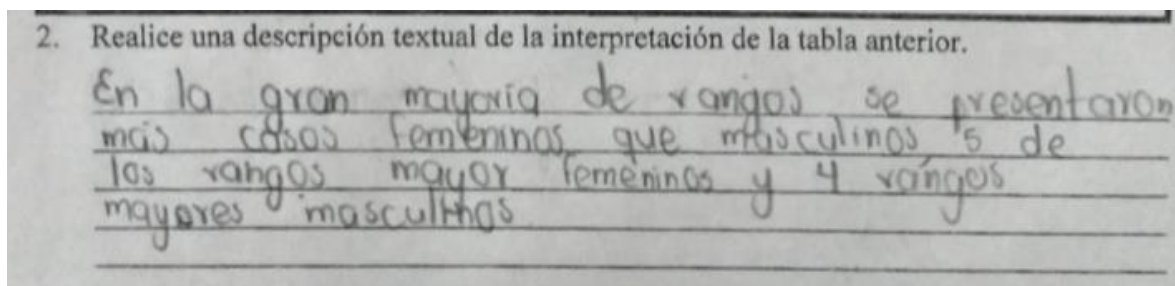 2. Realice una descripción textual de la interpretación de la tabla anterior.
En la gran mayoria de rangos se presentaron
mas casos femeninos que masculinos 5 de
los rangos mayor femeninos y 4 rangos
mayores masculinos